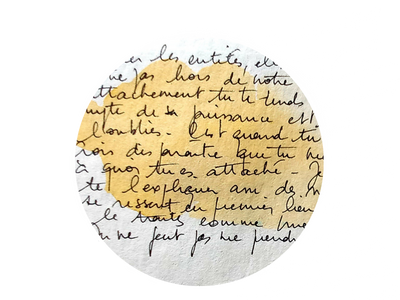 les entités, elle
pas hors de notre
attachement tu te rends
compte de sa puissance et
l'oublies. C'est quand tu
vois disparaître que tu
à quoi tu es attaché. Je
te l'expliquer am de m
se ressent en premier lieu
le traits comme une
on ne peut pas me prendre